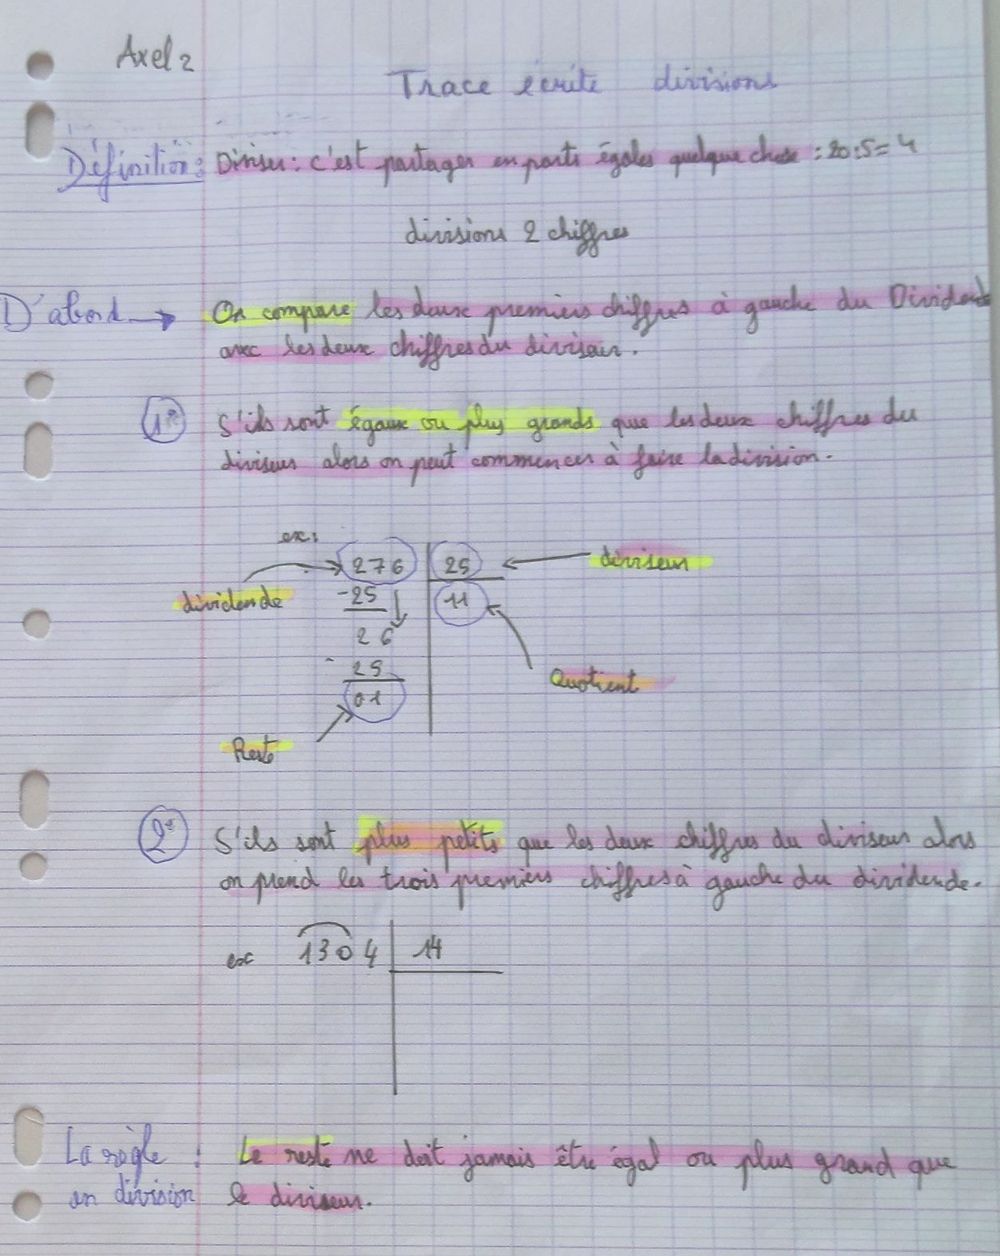 Axel 2
Trace écrite divisions
Définition : Diviser : c'est partager en parts égales quelque chose : 20:5=4
divisions 2 chiffres
D'abord → On compare les deux premiers chiffres à gauche du Dividende
avec les deux chiffres du diviseur.
1° S'ils sont égaux ou plus grands que les deux chiffres du
diviseur alors on peut commencer à faire la division.
ex:
276 25 diviseur
dividende -25 11
26
- 25 Quotient
01
Reste
2° S'ils sont plus petits que les deux chiffres du diviseur alors
on prend les trois premiers chiffres à gauche du dividende.
ex 1304 14
La règle : Le reste ne doit jamais être égal ou plus grand que
en division le diviseur.